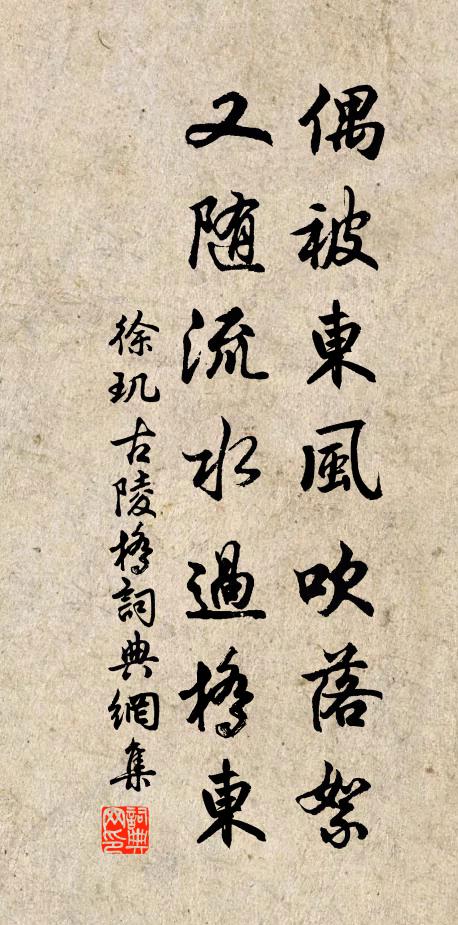 偶被東風吹落絮
又随流水過橋東
徐玑古陵橋詞典網集
詞典网印